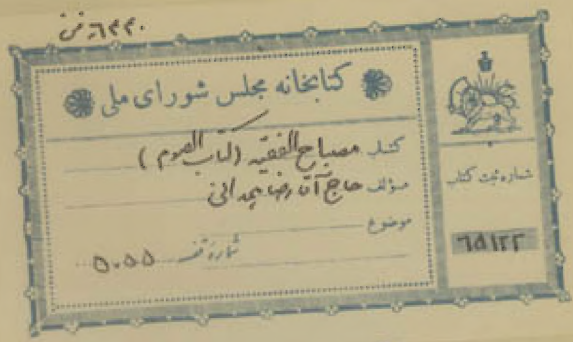 ۶۳۴۰
کتابخانه مجلس شورای ملی
کتاب مصباح الفقیه (کتاب الصوم)
مؤلف حاج آقا رضا همدانی
موضوع
شماره قفسه ۵۰۵۵
شماره ثبت کتاب
۶۵۱۲۲